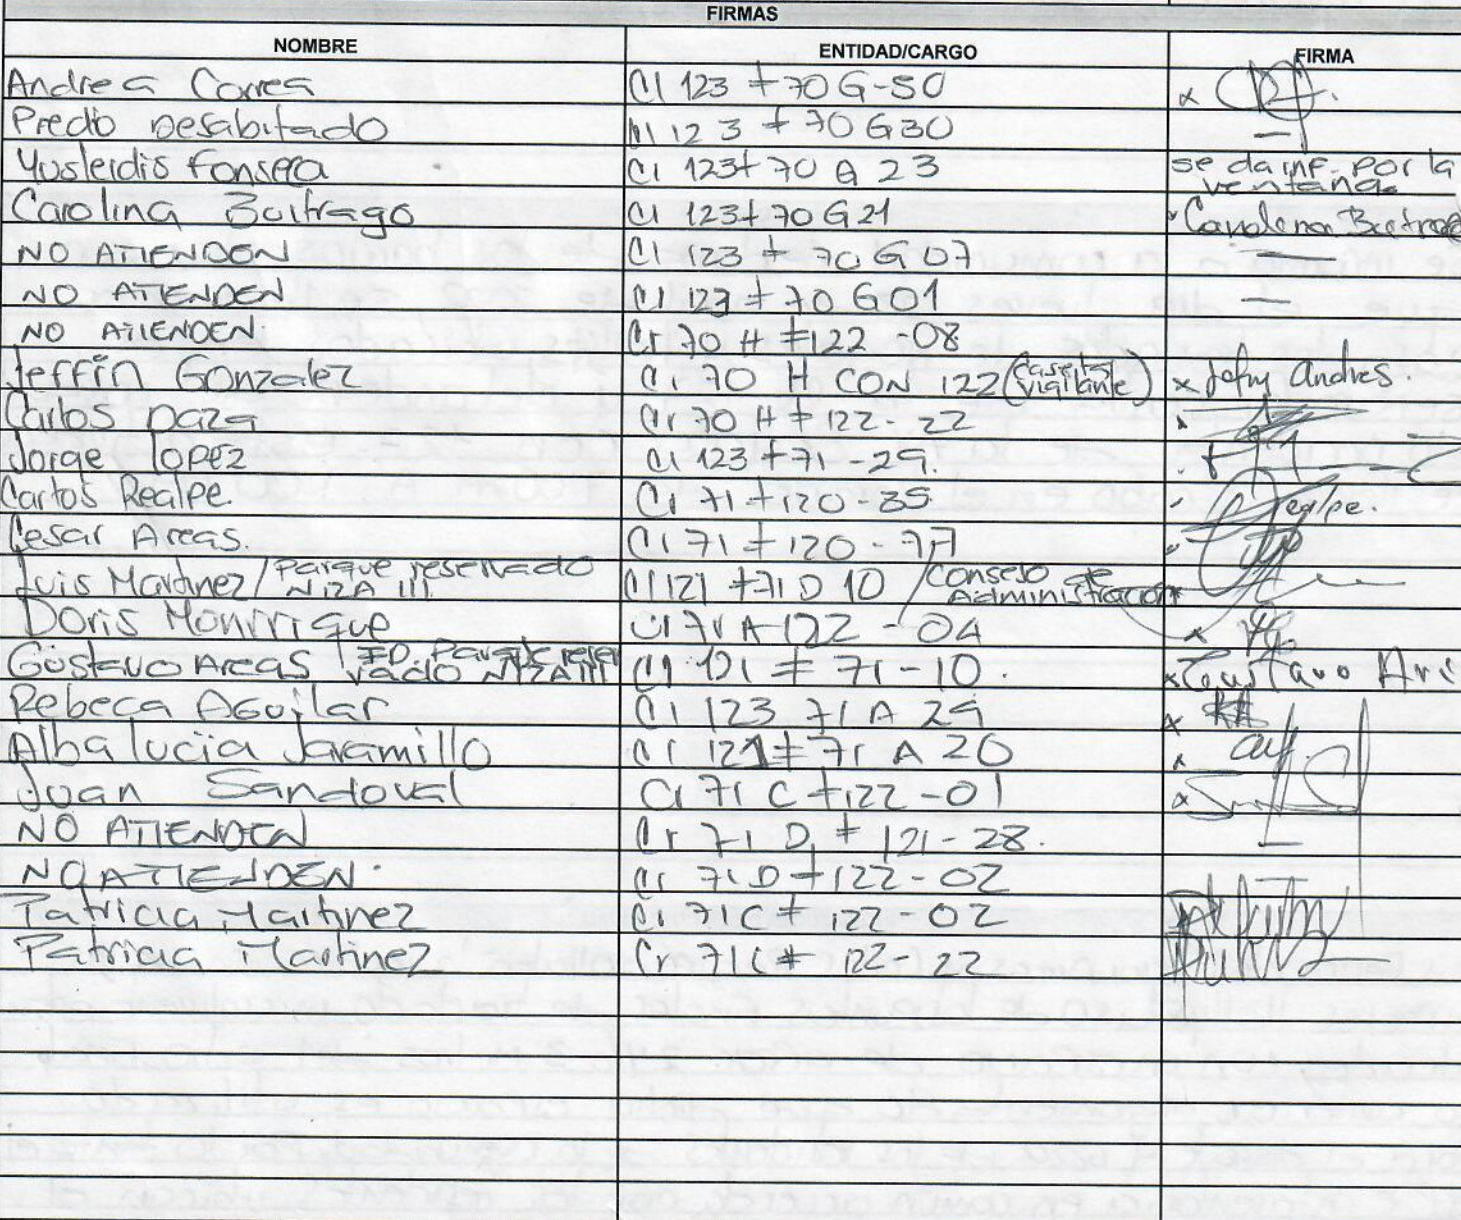 FIRMAS
NOMBRE ENTIDAD/CARGO FIRMA
Andrea Correa Cl 123 # 70 G-50
Predio Desabitado Cl 123 # 70 G30 —
Yusleidis Fonseca Cl 123 # 70 G 23 se da inf. por la ventana
Carolina Buitrago Cl 123 # 70 G21 Carolina Buitrago
NO ATIENDEN Cl 123 # 70 G 07 —
NO ATIENDEN Cl 123 # 70 G01 —
NO ATIENDEN Cr 70 H # 122 - 08
Jeffin Gonzalez Cr 70 H CON 122 (Caseta vigilante) x Jefry Andres.
Carlos Daza Cr 70 H # 122 - 22
Jorge lopez Cl 123 # 71 - 29.
Carlos Realpe. Cr 71 # 120 - 35 Realpe.
Cesar Areas. Cr 71 # 120 - 77
Luis Martinez / Parque reservado NIZA III Cl 121 # 71 D 10 / Consejo de Administracion
Doris Monrrique Cr 71 A 122 - 04
Gustavo Areas / ED. Parque reservado NIZA III Cl 121 # 71 - 10. x Gustavo Ari
Rebeca Aguilar Cl 123 71 A 29
Alba lucia Jaramillo Cl 121 # 71 A 20
Juan Sandoval Cr 71 C # 122 - 01
NO ATIENDEN Cr 71 D # 121 - 28. —
NO ATIENDEN. Cr 71 D # 122 - 02 —
Patricia Martinez Cr 71 C # 122 - 02
Patricia Martinez Cr 71 C # 122 - 22